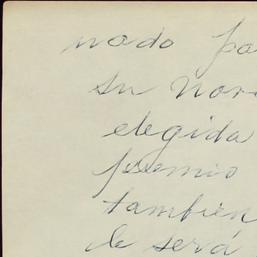 nado pa
su nor
elegida
premio
tambien
le será